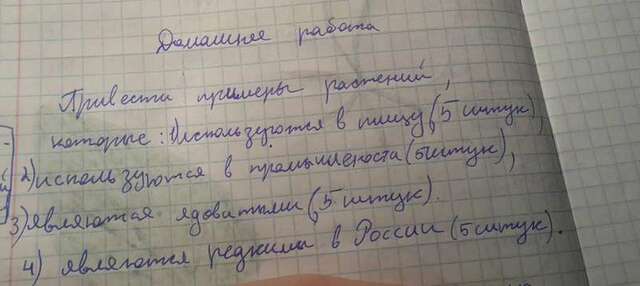 Домашнее работа
Привести примеры растений,
которые: 1) используются в пищу (5 штук),
2) используются в промышлености (5 штук),
3) являются ядовитыми (5 штук).
4) являются редкими в России (5 штук).